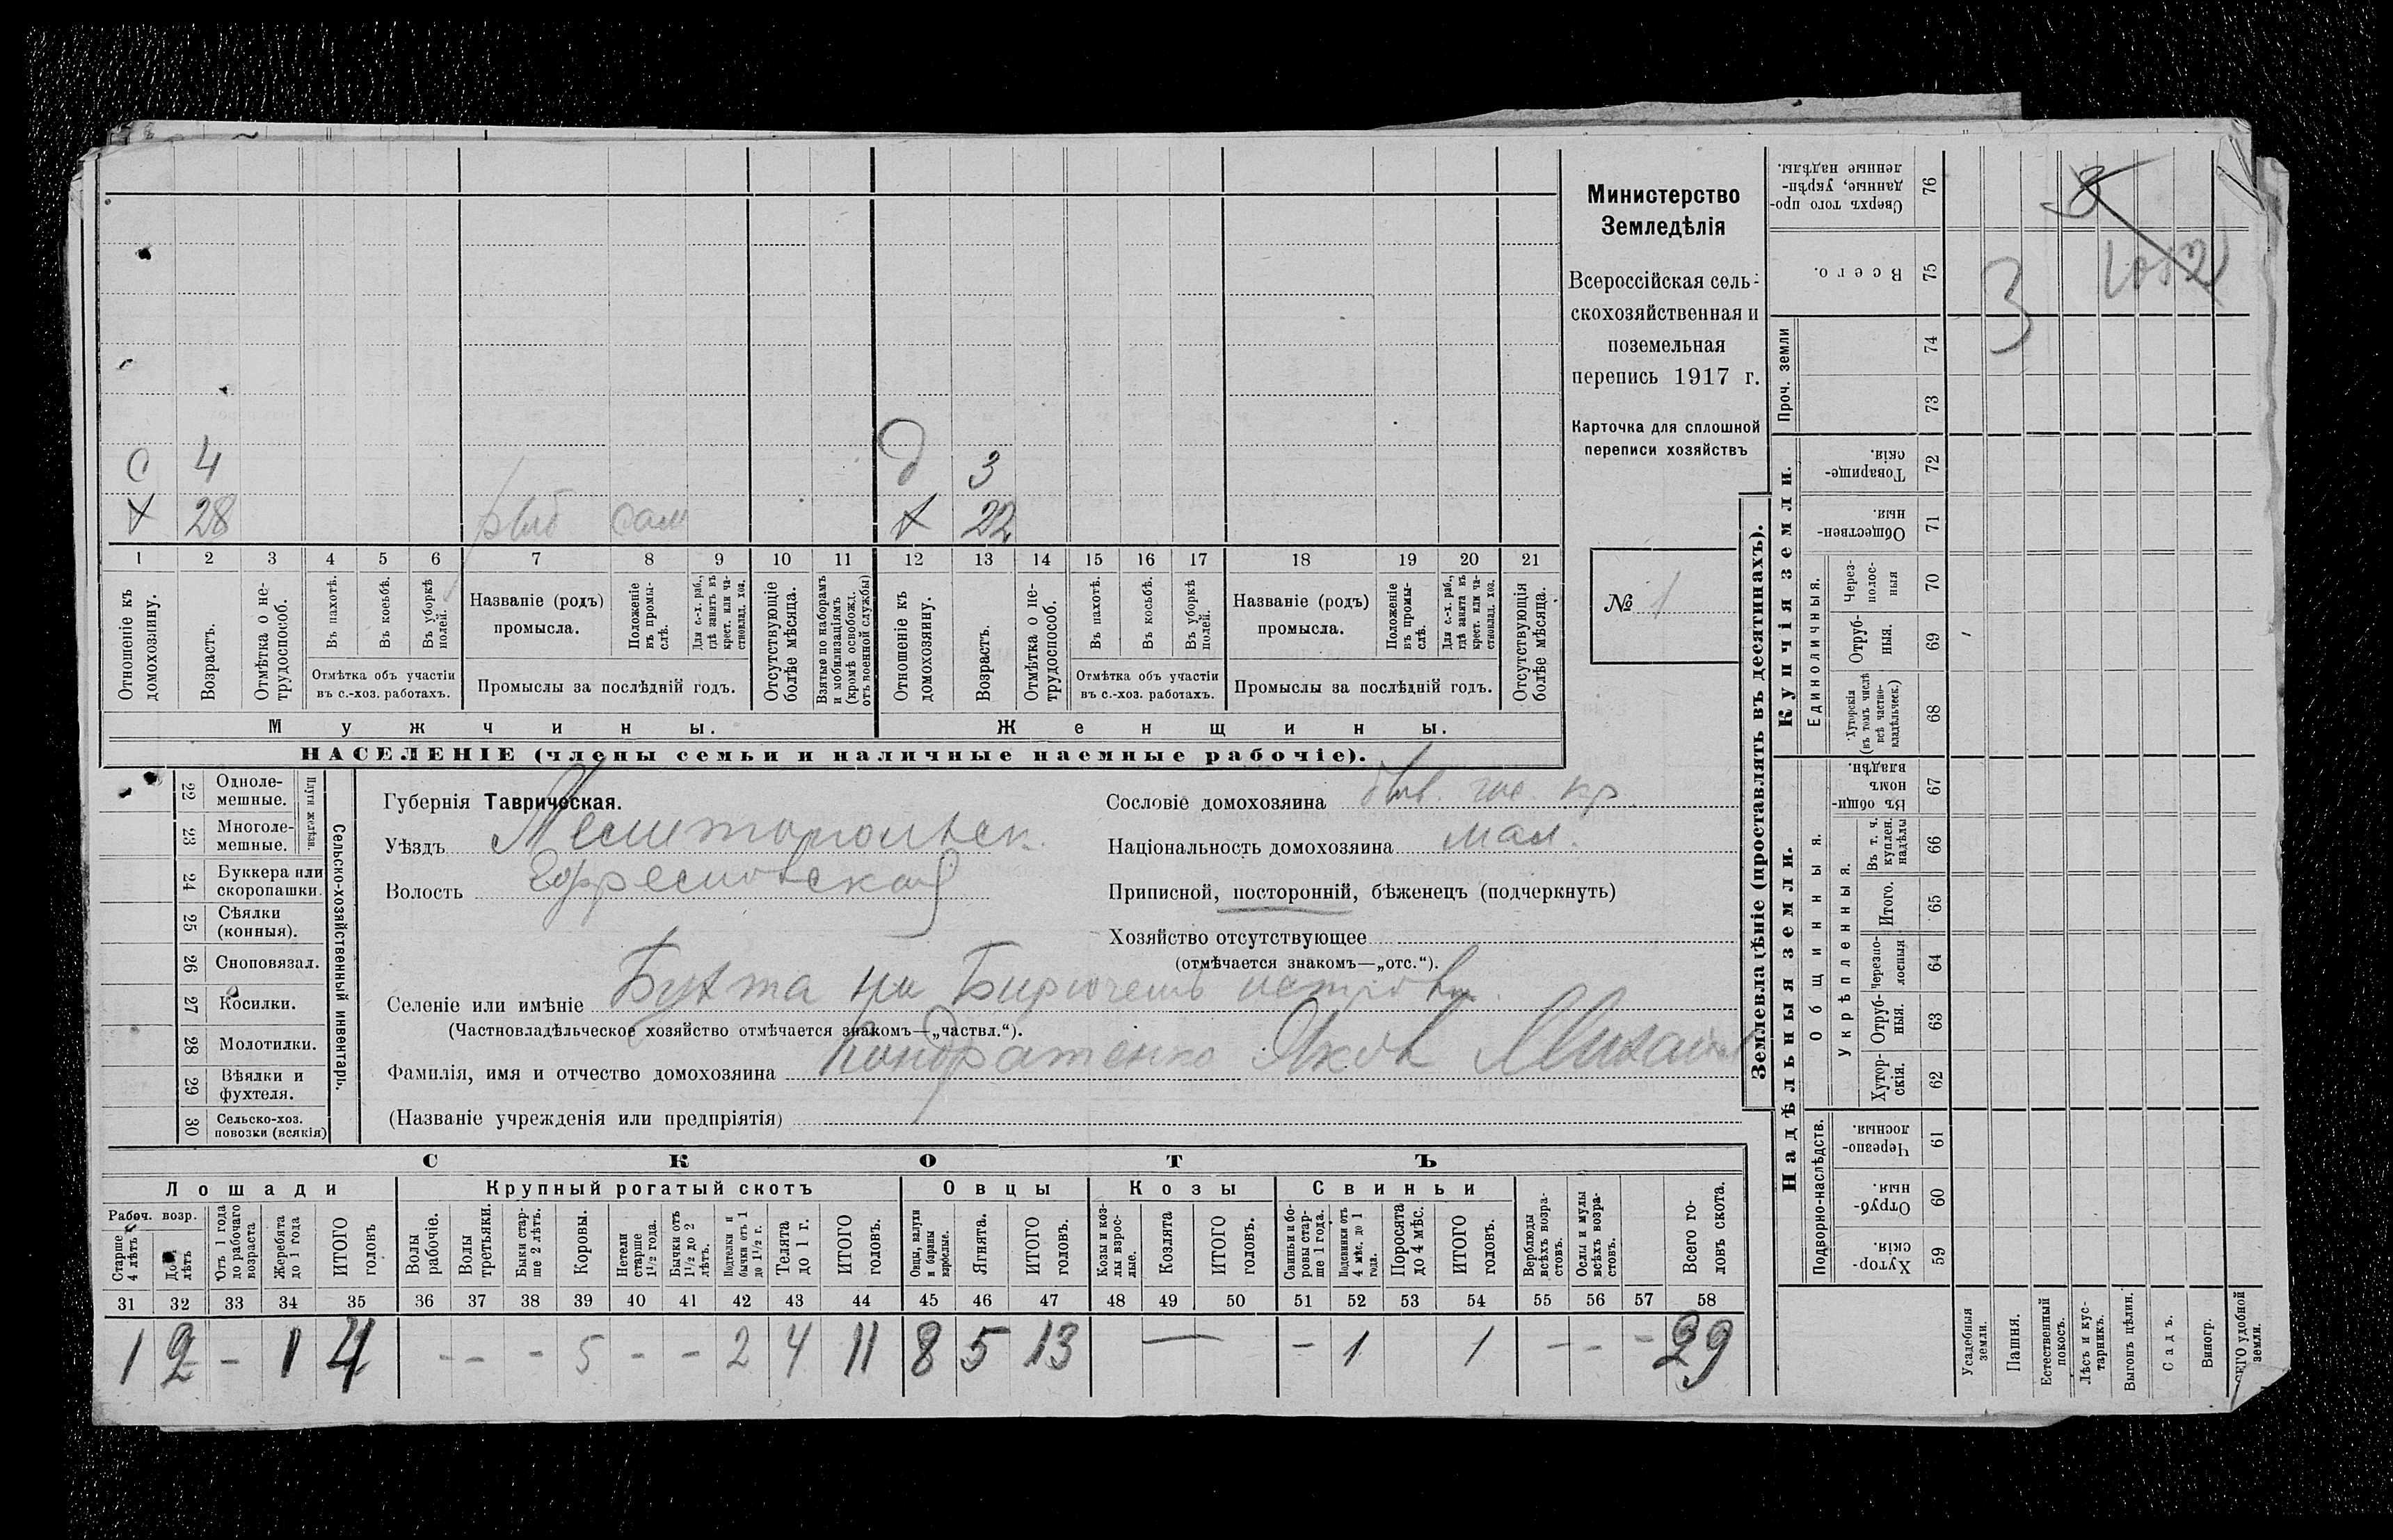 4 3
Х 28 рыб сам Х 22
1 2 3 4 5 6 7 8 9 10 11 12 13 14 15 16 17 18 19 20 21
Отношеніе къ домохозяину.
Возрастъ.
Отмѣтка о не-трудоспособ.
Въ пахотѣ.
Въ косьбѣ.
Въ уборкѣ полей.
Отмѣтка объ участіи
въ с.-хоз. работахъ.
Названіе (родъ)
промысла.
Положеніе въ промы-слѣ.
Для с.-х. раб., гдѣ занятъ въ крест. или ча-стновлад. хоз.
Промыслы за послѣдній годъ.
Отсутствующіе болѣе мѣсяца.
Взятые по наборамъ и мобилизаціямъ (кромѣ освобожд. отъ военной службы)
Отношеніе къ домохозяину.
Возрастъ.
Отмѣтка о не-трудоспособ.
Въ пахотѣ.
Въ косьбѣ.
Въ уборкѣ полей.
Отмѣтка объ участіи
въ с.-хоз. работахъ.
Названіе (родъ)
промысла.
Положеніе въ промы-слѣ.
Для с.-х. раб., гдѣ занята въ крест. или ча-стновлад. хоз.
Промыслы за послѣдній годъ.
Отсутствующія болѣе мѣсяца.
Мужчины.
Женщины.
НАСЕЛЕНІЕ (члены семьи и наличные наемные рабочіе).
Министерство
Земледѣлія
Всероссійская сель-
скохозяйственная и
поземельная
перепись 1917 г.
Карточка для сплошной
переписи хозяйствъ
№ 1
22 Одноле-мешные.
23 Многоле-мешные.
Плуги желѣзн.
24 Буккера или скоропашки.
25 Сѣялки (конныя).
26 Сноповязал.
27 Косилки.
28 Молотилки.
29 Вѣялки и фухтеля.
30 Сельско-хоз. повозки (всякія)
Сельско-хозяйственный инвентарь.
Губернія Таврическая.
Уѣздъ Мелитопольск.
Волость Ефремовская
Сословіе домохозяина быв. гос. кр.
Національность домохозяина мал.
Приписной, посторонній, бѣженецъ (подчеркнуть)
Хозяйство отсутствующее
(отмѣчается знакомъ—„отс.“).
Селеніе или имѣніе Бухта на Бирючемъ островѣ.
(Частновладѣльческое хозяйство отмѣчается знакомъ—„частвл.“).
Фамилія, имя и отчество домохозяина Кондратенко Яковъ Михайл
(Названіе учрежденія или предпріятія)
СКОТЪ
Лошади
Крупный рогатый скотъ
Овцы
Козы
Свиньи
Рабоч. возр.
Старше 4 лѣтъ
До 4 лѣтъ
Отъ 1 года до рабочаго возраста
Жеребята до 1 года
ИТОГО головъ
Волы рабочіе.
Волы третьяки.
Быки стар-ше 2 лѣтъ.
Коровы.
Нетели старше 1½ года.
Бычки отъ 1½ до 2 лѣтъ.
Подтелки и бычки отъ 1 до 1½ г.
Телята до 1 г.
ИТОГО головъ.
Овцы, валухи и бараны взрослые.
Ягнята.
ИТОГО головъ.
Козы и коз-лы взрос-лые.
Козлята
ИТОГО головъ.
Свиньи и бо-ровы стар-ше 1 года.
Подсвинки отъ 4 мѣс. до 1 года.
Поросята до 4 мѣс.
ИТОГО головъ.
Верблюды всѣхъ возра-стовъ.
Ослы и мулы всѣхъ возра-стовъ.
Всего го-ловъ скота.
31 32 33 34 35 36 37 38 39 40 41 42 43 44 45 46 47 48 49 50 51 52 53 54 55 56 57 58
1 2 – 1 4 – – – 5 – – 2 4 11 8 5 13 — – 1 1 – – – 29
Землевладѣніе (проставлять въ десятинахъ).
Надѣльныя земли.
Купчія земли.
Проч. земли
Подворно-наслѣдств.
Общинныя.
Укрѣпленныя.
Единоличныя.
76 Сверхъ того про-данные, укрѣп-ленные надѣлы.
75 Всего.
74
73
72 Товарище-скія.
71 Обществен-ныя.
70 Через-полос-ныя
69 Отруб-ныя.
68 Хуторскія (въ томъ числѣ всѣ частно-владѣльческ.)
67 Въ общи-номъ владѣн.
66 Въ т. ч. куплен. надѣлы
65 Итого.
64 Черезпо-лосныя
63 Отруб-ныя.
62 Хутор-скія.
61 Черезпо-лосныя.
60 Отруб-ныя.
59 Хутор-скія.
Усадебныя земли.
Пашня.
Естественный покосъ.
Лѣсъ и кус-тарникъ.
Выгонъ цѣлин.
Садъ.
Виногр.
ВСЕГО удобной земли.
3